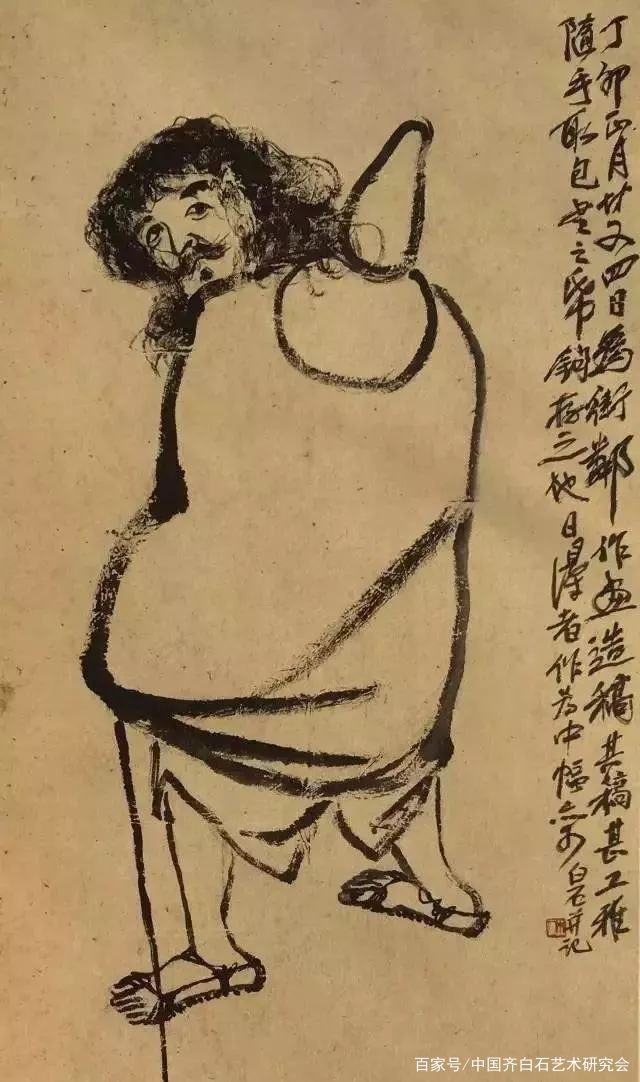 丁卯正月廿又四日為街鄰作畫造稿其稿甚工雅
隨手取包書之帋鉤存之他日得者作為中幅亦可 白石并記
百家号/中国齐白石艺术研究会